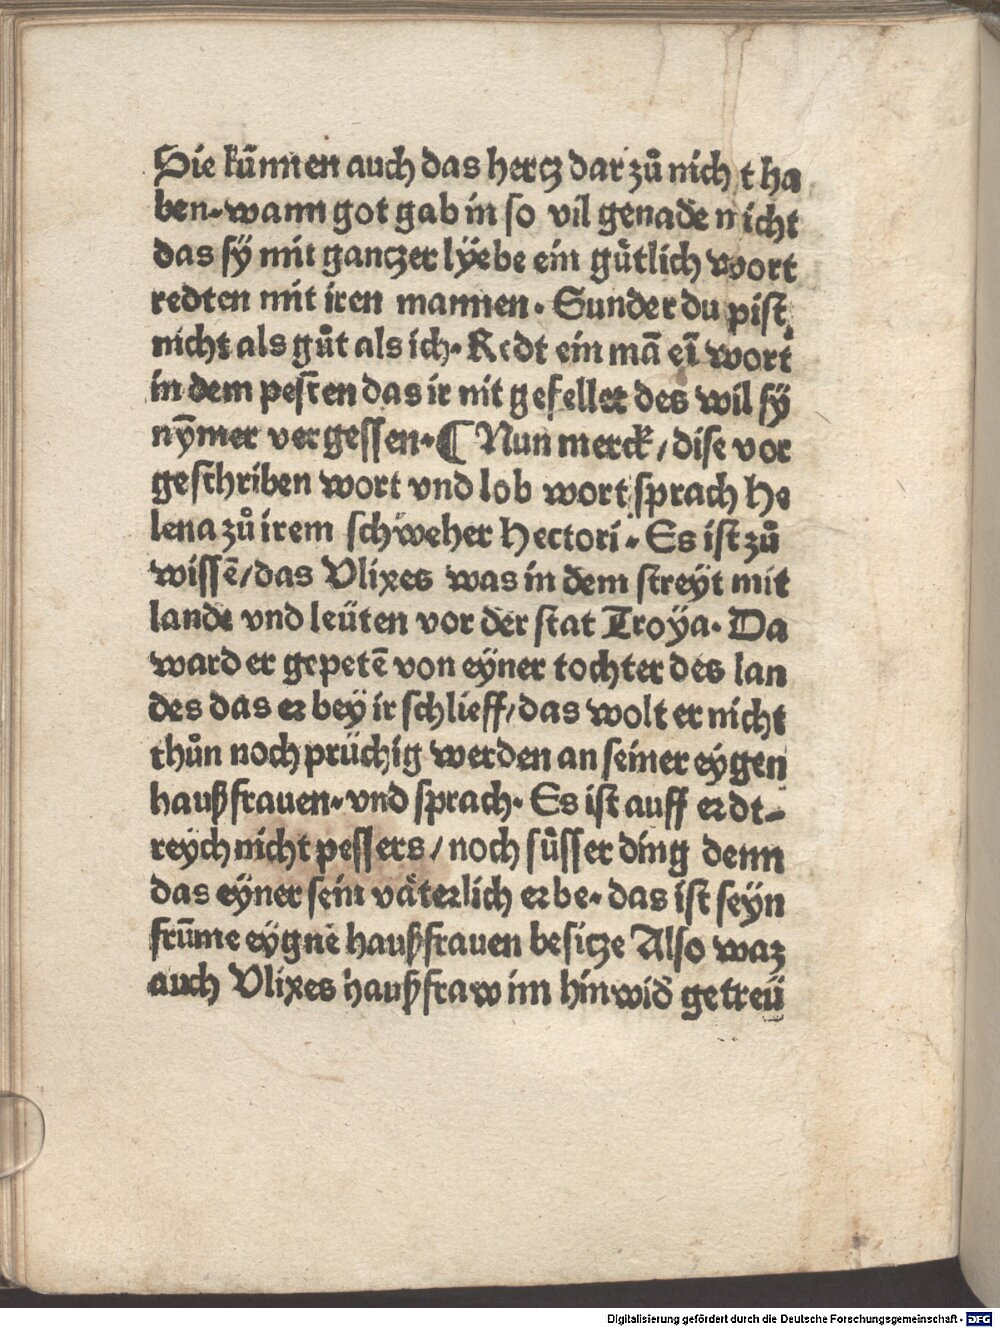 Sie kün̄en auch das hertz dar zů nicht ha
ben. wann got gab in so vil genade nicht
das sÿ mit gantzer lÿebe ein gůtlich wort
redten mit iren mannen. Sunder du pist
nicht als gůt als ich. Redt ein mā eī wort
in dem pesten das ir nit gefellet des wil sÿ
nȳmer vergessen. ¶ Nun merck / dise vor
geschriben wort vnd lob wort sprach He
lena zů irem schweher Hectori. Es ist zů
wissē / das Vlixes was in dem streÿt mit
lande vnd leüten vor der stat Troÿa. Da
ward er gepetē von eÿner tochter des lan
des das er beÿ ir schlieff / das wolt er nicht
thůn noch prüchig werden an seiner eÿgen
haußfrauen. vnd sprach. Es ist auff erdt-
reÿch nicht pessers / noch süsser ding denn
das eÿner sein väterlich erbe. das ist seÿn
frūme eÿgne haußfrauen besitze Also waz
auch Vlixes haußfraw im hinwid getreü
Digitalisierung gefördert durch die Deutsche Forschungsgemeinschaft - DFG